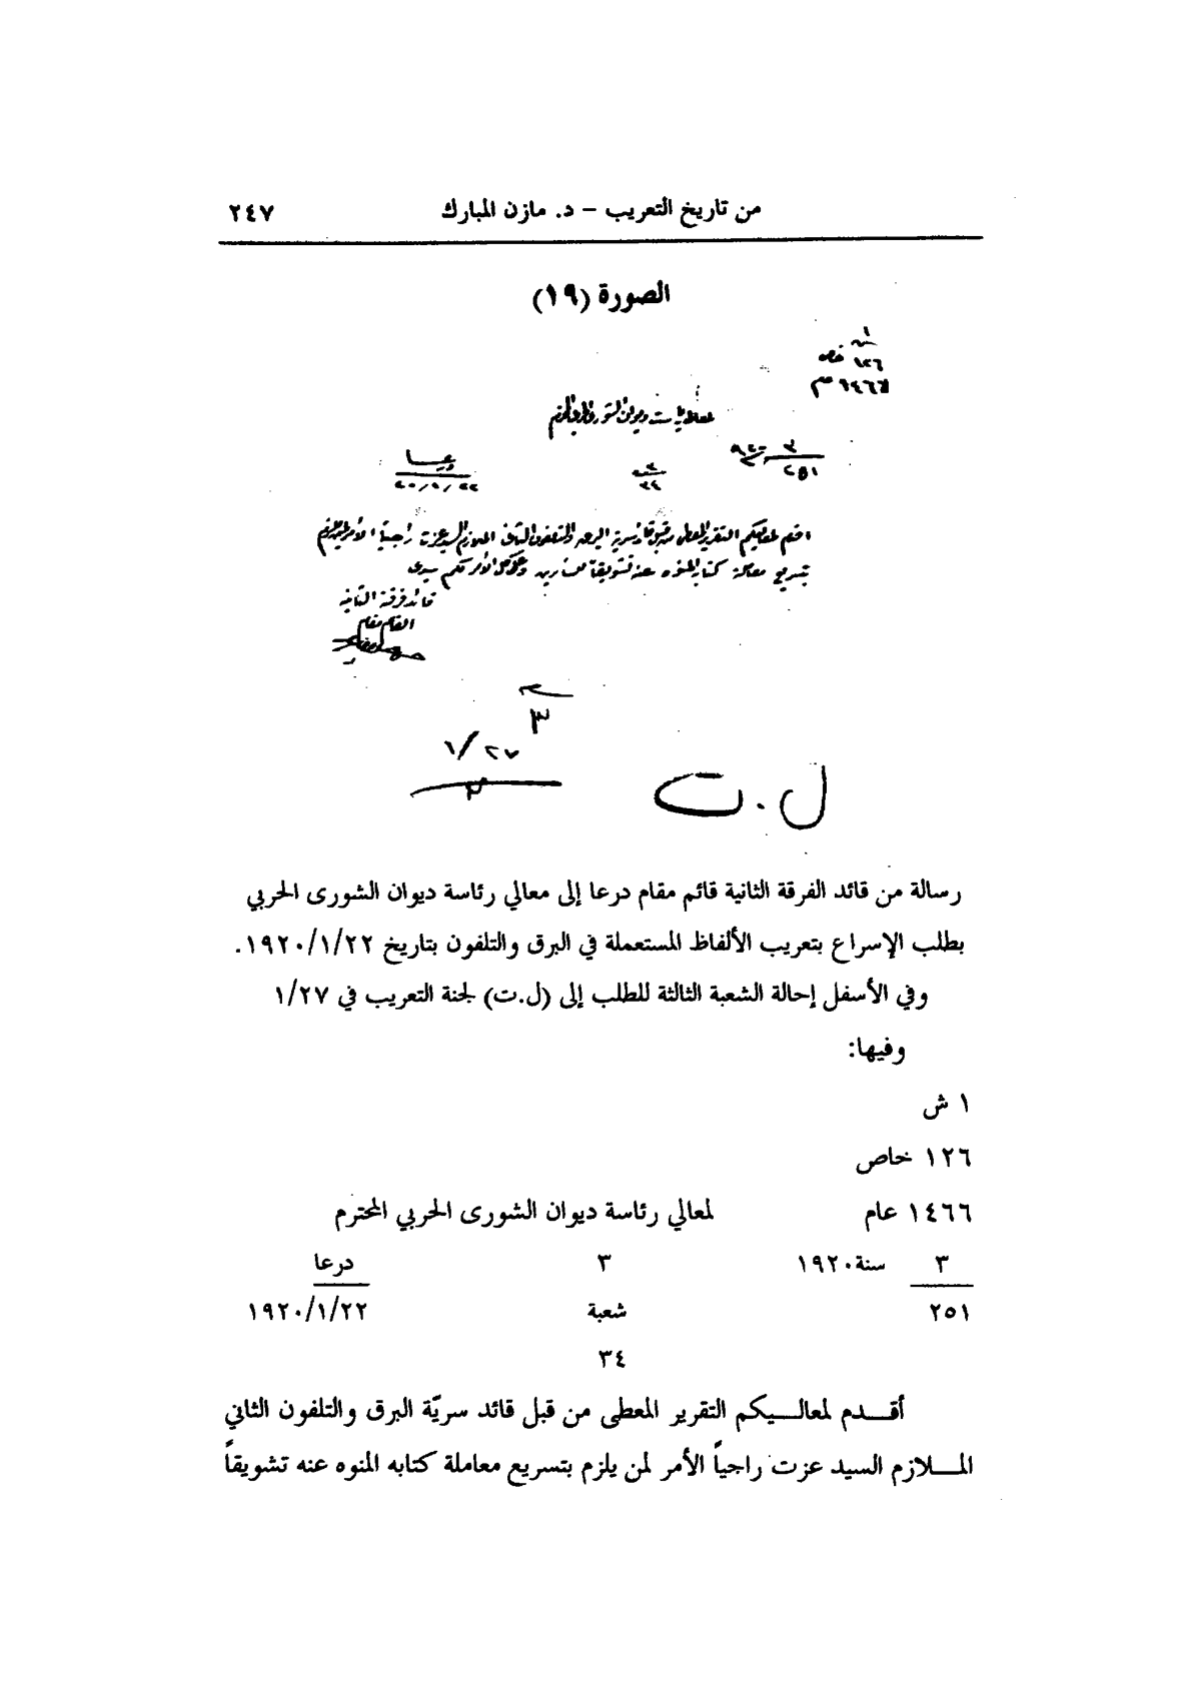 من تاريخ التعريب – د. مازن المبارك ٢٤٧
الصورة (١٩)
١
١٢٦ خص
١٤٦٦ عم
٣
٢٥١
٣٤
قائد فرقة الثانية
القائم مقام
٣
١/٢٧
ل.ت
رسالة من قائد الفرقة الثانية قائم مقام درعا إلى معالي رئاسة ديوان الشورى الحربي
بطلب الإسراع بتعريب الألفاظ المستعملة في البرق والتلفون بتاريخ ١٩٢٠/١/٢٢.
وفي الأسفل إحالة الشعبة الثالثة للطلب إلى (ل.ت) لجنة التعريب في ١/٢٧
وفيها:
١ ش
١٢٦ خاص
١٤٦٦ عام لمعالي رئاسة ديوان الشورى الحربي المحترم
٣ سنة ١٩٢٠ ٣ درعا
٢٥١ شعبة ١٩٢٠/١/٢٢
٣٤
أقـــدم لمعالـــيكم التقرير المعطى من قبل قائد سريّة البرق والتلفون الثاني
المـــلازم السيد عزت راجياً الأمر لمن يلزم بتسريع معاملة كتابه المنوه عنه تشويقاً